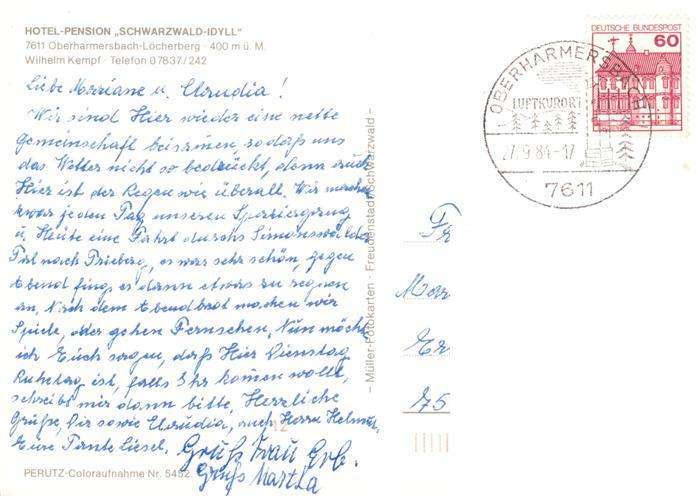 HOTEL-PENSION „SCHWARZWALD-IDYLL"
7611 Oberharmersbach-Löcherberg · 400 m ü. M.
Wilhelm Kempf · Telefon 07837/242
Liebe Mariane u. Claudia!
Wir sind Hier wieder eine nette
Gemeinschaft beisamen, sodaß uns
das Wetter nicht so bedrückt, denn auch
Hier ist der Regen wie überall. Wir machen
zwar jeden Tag unseren Spaziergang
u. Heute eine Fahrt durchs Simonswälder
Tal nach Trieberg, es war sehr schön, gegen
Abend fing es dann etwas zu regnen
an. Nach dem Abendbrot machen wir
Spiele, oder gehen Fernsehen. Nun möcht
ich Euch sagen, daß Hier Dienstag
Ruhetag ist, falls Ihr komen wollt,
schreibt mir dann bitte, Herzliche
Grüße, Dir sowie Claudia, auch Herrn Helmut
Eure Tante Liesel. Gruß Frau Erb.
Gruß Martha
PERUTZ-Coloraufnahme Nr. 5452
– Müller-Fotokarten · Freudenstadt/Schwarzwald –
DEUTSCHE BUNDESPOST
60
OBERHARMERSBACH
LUFTKURORT
27.9.84-17
7611
Fr
Mar
Er
75